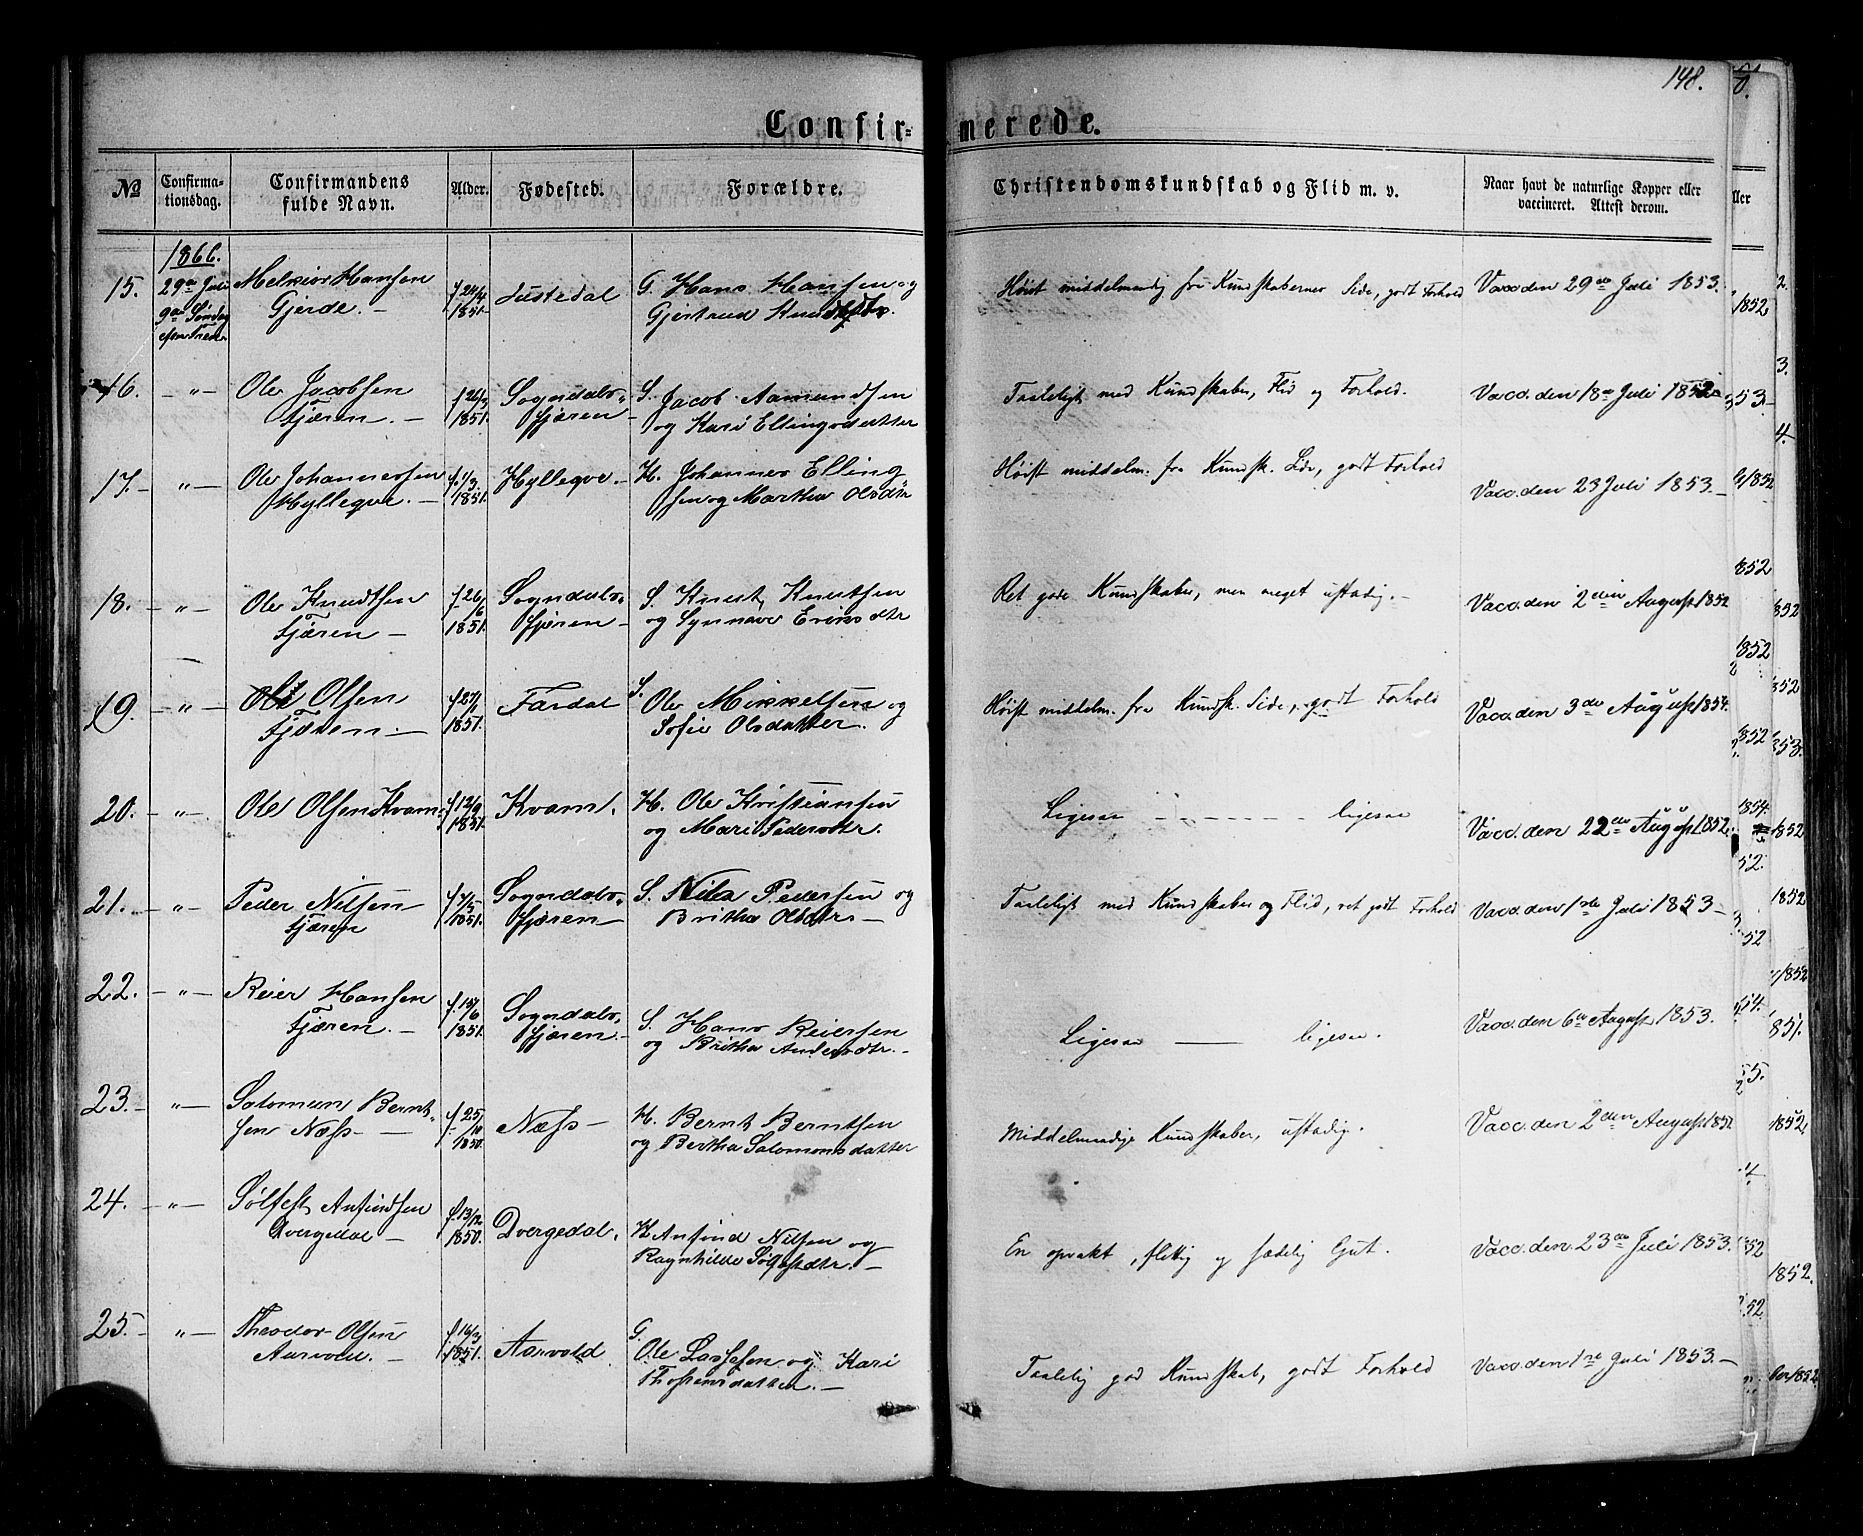 148.
Confir- merede.
No Confirma- tionsdag. Confirmandens fulde Navn. Alder. Fødested. Forældre. Christendomskundskab og Flid m. v. Naar havt de naturlige Kopper eller vaccineret. Attest derom.
1866.
15. 29de Juli Melkior Hansen f. 24/4 Justedal G. Hans Hansen og Høist middelmaadig fra Kundskabernes Side, godt Forhold Vacc den 29de Juli 1853.
9de Søndag Gjerde. – 1851. Gjertrud Knudsdtr.
efter Trefr.
16. – " – Ole Jacobsen f. 26/ Sogndals- S. Jacob Aamundsen Taaleligt med Kundskaber, Flid og Forhold. Vacc. den 18de Juli
Fjæren. – 1851. fjæren – og Kari Ellingsdatter
17. – " – Ole Johannessen f. 1/3 Hylleqve. – H. Johannes Elling Høist middelm. fra Kundsk. Side, godt Forhold Vacc. den 23 Juli 1853. –
Hylleqve. – 1851. sen og Martha Olsdtr
18. – " – Ole Knudtsen f. 26/6 Sogndals- S. Knut Knutsen Ret gode Kundskaber, men meget ustadig. – Vacc. den 2den August 1852
Fjæren – 1851. fjæren – og Synneve Eriksdtr
19. – " – Ole Olsen f. 27/1 Fardal S. Ole Mikkelsen og Høist middelm. fra Kundsk. Side, godt Forhold Vacc. den 3die August 1854.
Fjæren. – 1851. Sofie Olsdatter.
20. – " – Ole Olsen Kvam. f. 12/9 Kvam. H. Ole Kristiansen Ligesaa – – – – ligesaa Vacc. den 22de August 1852.
1851. og Mari Pedersdtr.
21. – " – Peder Nilsen f. 7/5 Sogndals- S. Nils Pedersen og Taaleligt med Kundskaber og Flid, ret godt Forhold Vacc. den 1ste Juli 1853 –
Fjæren 1851. fjæren – Britha Olsdtr. –
22. – " – Reier Hansen f. 15/6 Sogndals- S. Hans Reiersen Ligesaa – ligesaa. Vacc. den 6te August 1853.
Fjæren. – 1851. fjæren – og Britha Andersdtr. –
23. – " – Salomon Bernt- f. 25/10 Næss – H. Bernt Berntsen Middelmaadige Kundskaber, ustadig. Vacc. den 2den August 1852
sen Næss – 1850. og Bertha Salomonsdatter
24. – " – Sølfest Anfindsen f. 13/12 Dvergedal. H. Anfind Nilsen og En opvakt, flittig og sædelig Gut. Vacc. den 23de Juli 1853.
Dvergedal – 1850. Ragnhilde Sølfestdtr. –
25. – " – Theodor Olsen f. 16/3 Aarvold. G. Ole Lassesen og Kari Taalelig god Kundskab, godt Forhold Vacc den 1ste Juli 1853. –
Aarvold. – 1851. Thostensdatter. –